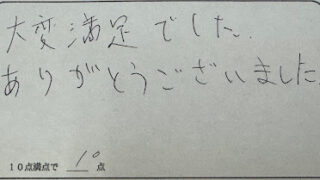 大変満足でした.
ありがとうございました.
10点満点で 10 点